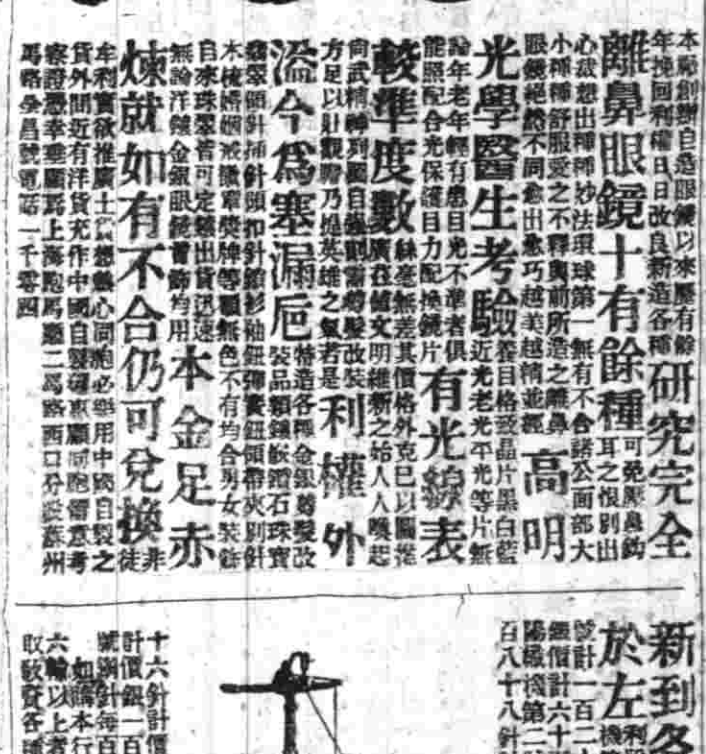 本廠創辦自造眼鏡以來歷有餘
年挽回利權日日改良新造各種
研究完全
離鼻眼鏡十有餘種
可免壓鼻鈎
耳之恨別出
心裁想出種種妙法環球第一無有不合諸公面部大
小種種舒服愛之不釋與前所造之離鼻
眼鏡絕然不同愈出愈巧越美越精並經
高明
光學醫生考驗
養目格致晶片黑白藍
近光老光平光等片無
論年老年輕有患目光不準者俱
能照配合光保護目力配換鏡片
有光線表
較準度數
絲毫無差其價格外克已以圖挽
廣在值文明維新之始人人喚起
尚武精神列國自強則需剪髮改裝
方足以壯觀瞻乃是英雄之氣若是
利權外
溢今為塞漏卮
特造各種金銀剪髮改
裝品類鑲嵌鑽石珠寶
翡翠領針插針頭扣針鎖衫袖鈕彈簧鈕領帶夾別針
木梳婚姻戒徽章獎牌等類無色不有均合男女裝飾
自來珠翠皆可定鑲出貨迅速
無論洋鑲金銀眼鏡首飾均用
本金足赤
煉就如有不合仍可兌換
非
徒
牟利實欲推廣土貨想熱心同胞必樂用中國自製之
貨外間近有洋貨充作中國自製和惠顧同胞留意考
察證憑幸垂顧為上海跑馬廳二馬路西口分設蘇州
馬路榮昌號電話一千零四
新到各
於左
利
機
號計一百二
無價計六十
陽機機第二
百八十八針
十六針計價
計價銀一百
號鋼針每百
如購本行
六輪以上者
取敎費各